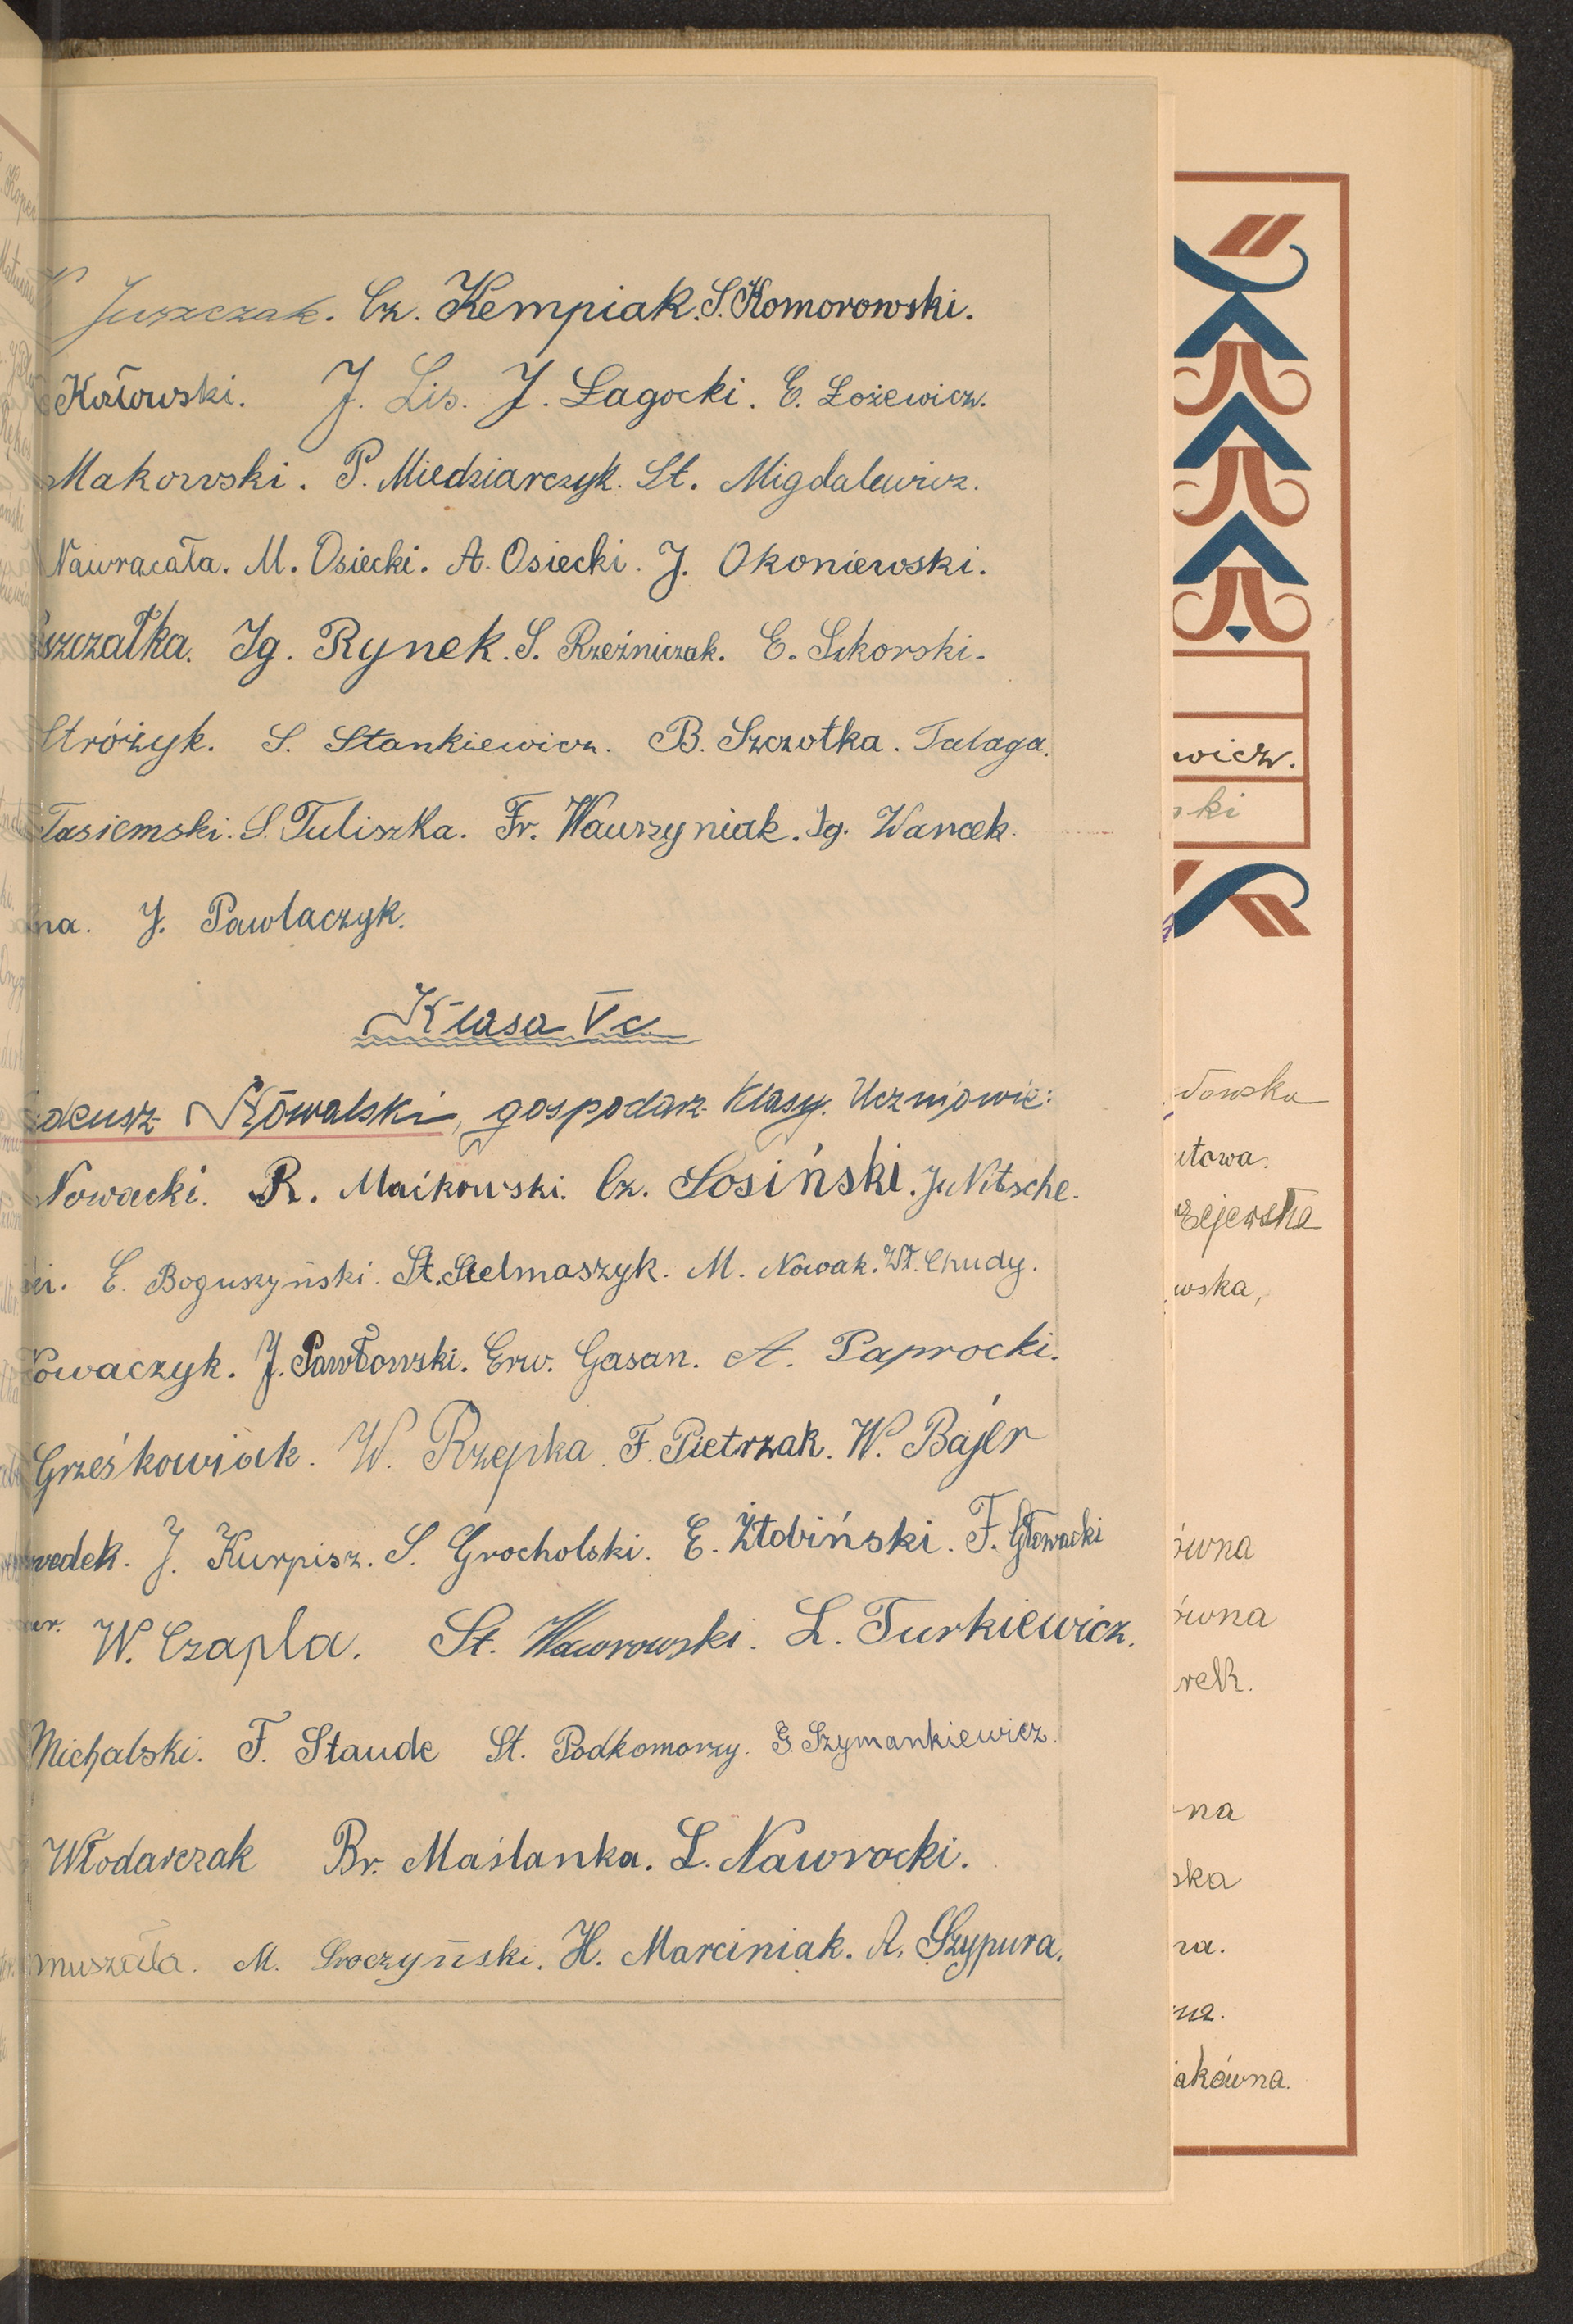 Juszczak. Cz. Kempiak. S. Komorowski.
Kozłowski. J. Lis. J. Łagocki. E. Łożewicz.
Makowski. P. Miedziarczyk. St. Migdalewicz.
Nawracała. M. Osiecki. A. Osiecki. J. Okoniewski.
szczałka. Ig. Rynek. S. Rzeźniczak. E. Sikorski.
Stróżyk. S. Stankiewicz. B. Szczotka. Talaga.
Tasiemski. S. Tuliszka. Fr. Wawrzyniak. Ig. Wancek.
na. J. Pawlaczyk.
Klasa Vc
adeusz Kowalski, gospodarz klasy. Uczniowie:
Nowacki. R. Maćkowski. Cz. Łosiński. J. Nitsche.
ki. E. Boguszyński. St. Stelmaszyk. M. Nowak. Wł. Chudy.
Kowaczyk. J. Pawłowski. Erw. Gasan. A. Paprocki.
Grześkowiak. W. Rzepka. F. Pietrzak. W. Bajer
wedek. J. Kurpisz. S. Grocholski. E. Żłobiński. F. Głowacki
er. W. Czapla. St. Waworowski. L. Turkiewicz.
Michalski. F. Staude St. Podkomorzy. G. Szymankiewicz.
Włodarczak Br. Maślanka. L. Nawrocki.
muszała. M. Sroczyński. H. Marciniak. A. Szypura.
wicz.
ski
dowska
utowa.
rzejewska
wska,
ówna
ówna
rek.
na
ska
na.
na.
iakówna.